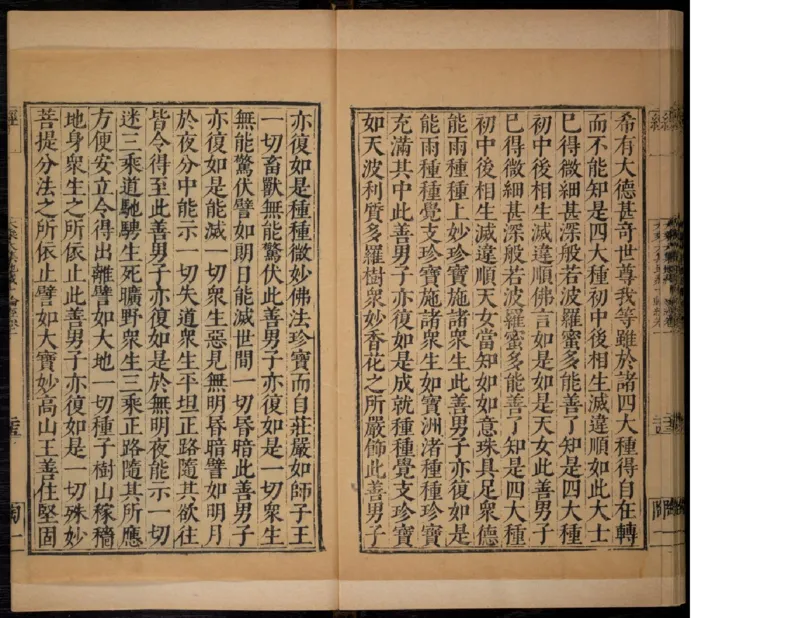 希有大德甚奇世尊我等雖於諸四大種得自在轉
而不能知是四大種初中後相生滅違順如此大士
已得微細甚深般若波羅蜜多能善了知是四大種
初中後相生滅違順佛言如是如是天女此善男子
已得微細甚深般若波羅蜜多能善了知是四大種
初中後相生滅違順天女當知如如意珠具足衆德
能雨種種上妙珍寶施諸衆生此善男子亦復如是
能雨種種覺支珍寶施諸衆生如寶洲渚種種珍寶
充滿其中此善男子亦復如是成就種種覺支珍寶
如天波利質多羅樹衆妙香花之所嚴飾此善男子
亦復如是種種微妙佛法珍寶而自莊嚴如師子王
一切畜獸無能驚伏此善男子亦復如是一切衆生
無能驚伏譬如朗日能滅世間一切昏暗此善男子
亦復如是能滅一切衆生惡見無明昏暗譬如明月
於夜分中能示一切失道衆生平坦正路隨其欲往
皆令得至此善男子亦復如是於無明夜能示一切
迷三乘道馳騁生死曠野衆生三乘正路隨其所應
方便安立令得出離譬如大地一切種子樹山稼穡
地身衆生之所依止此善男子亦復如是一切殊妙
菩提分法之所依止譬如大寶妙高山王善住堅固